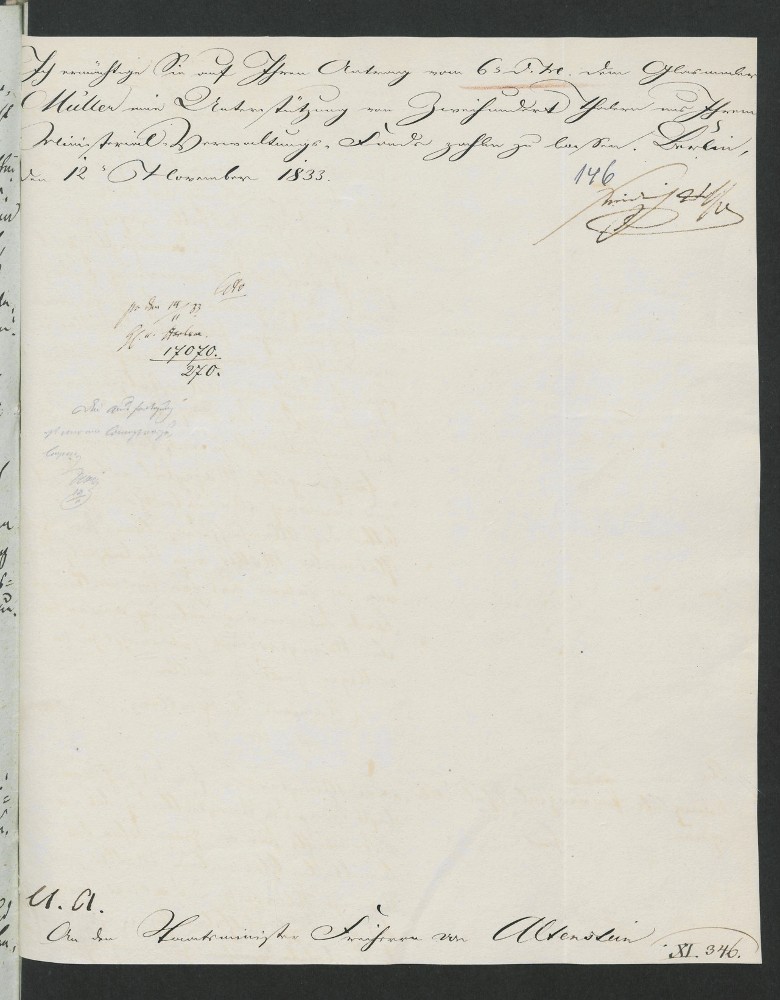 Ich ermächtige Sie auf Ihren Antrag vom 6s d. M. dem Glasmaler
Müller eine Unterstützung von Zweihundert Thalern aus Ihrem
Ministerial-Verwaltungs-Fonds zahlen zu lassen. Berlin,
den 12s November 1833.
146
Friedrich Wilhelm
17070.
270.
A. A.
An den Staatsminister Freiherrn von Altenstein
XI. 346.